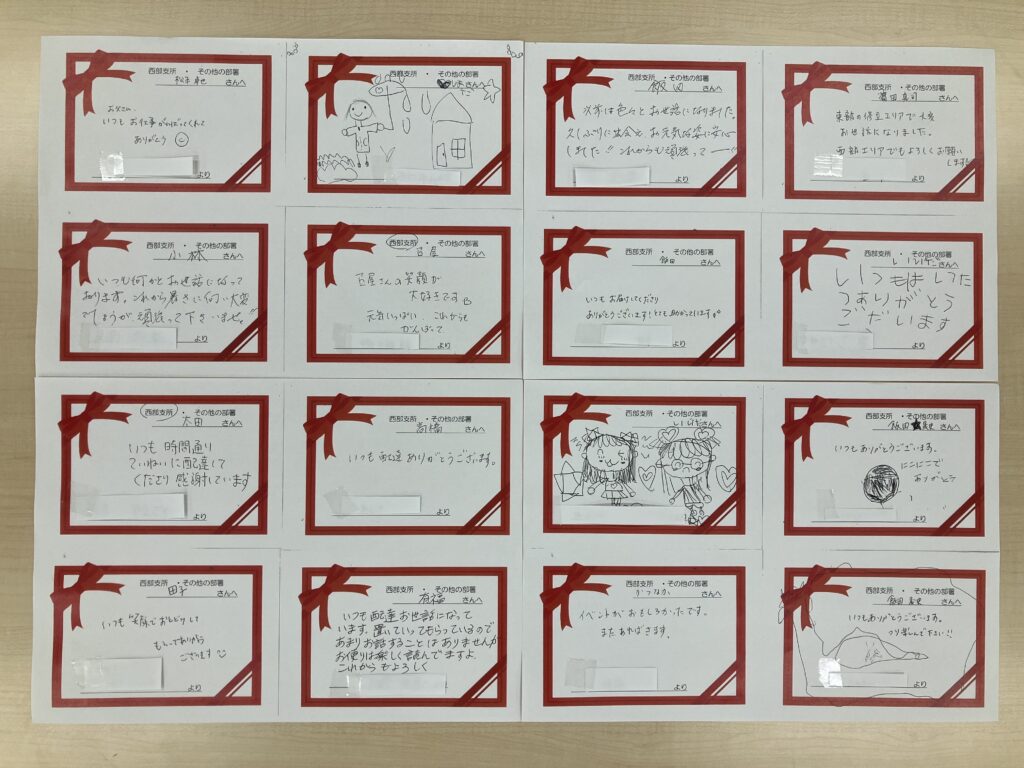 西部支所 ・ その他の部署
さんへ
お父さん、
いつも お仕事がんばってくれて
ありがとう
より
西部支所 ・ その他の部署
さんへ
西部支所 ・ その他の部署
飯田 さんへ
大変は色々とお世話になりました。
これからも頑張って
より
西部支所 ・ その他の部署
真司 さんへ
エリアで大変
お世話になりました。
西部エリアでもよろしくお願い
します
より
西部支所 ・ その他の部署
小林 さんへ
いつも何かとお世話になって
おります。これから暑さに向い大変
でしょうが頑張って下さいませ。
より
西部支所 ・ その他の部署
古屋 さんへ
古屋さんの笑顔が
大好きです
元気いっぱい、これからも
がんばって
より
西部支所 ・ その他の部署
飯田 さんへ
いつもお届けしてくださり
ありがとうございます!とても助かっています
より
西部支所 ・ その他の部署
いいだ さんへ
いつもはいたつ
ありがとう
ございます
より
西部支所 ・ その他の部署
太田 さんへ
いつも 時間通り
ていねいに配達して
くださり 感謝しています
より
西部支所 ・ その他の部署
高橋 さんへ
いつも 配達 ありがとうございます。
より
西部支所 ・ その他の部署
さんへ
西部支所 ・ その他の部署
飯田 さんへ
いつもありがとうございます。
にこにこで
ありがとう
より
西部支所 ・ その他の部署
さんへ
いつも笑顔で
ありがとう
ございます
より
西部支所 ・ その他の部署
有福 さんへ
いつも配達お世話になって
います。置いていってもらっているので
あまりお話することはありませんが
お便りは楽しく読んでますよ。
これからもよろしく
より
西部支所 ・ その他の部署
さんへ
イベントがおもしろかったです。
またあそびきます。
より
西部支所 ・ その他の部署
飯田 さんへ
いつもありがとうございます。
つり楽しんで下さい!!
より